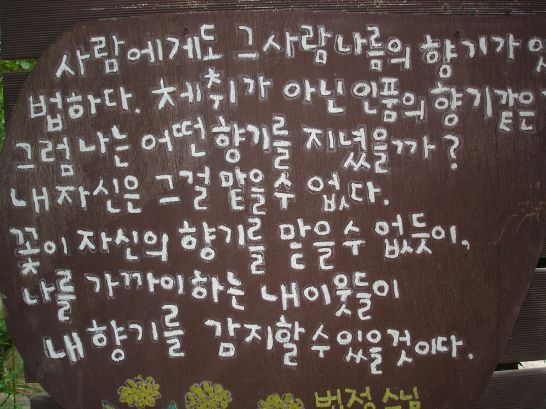 사람에게도 그 사람 나름의 향기가 있
법하다. 체취가 아닌 인품의 향기 같은
그럼 나는 어떤 향기를 지녔을까?
내 자신은 그걸 맡을 수 없다.
꽃이 자신의 향기를 맡을 수 없듯이,
나를 가까이하는 내 이웃들이
내 향기를 감지할 수 있을 것이다.
법정 스님